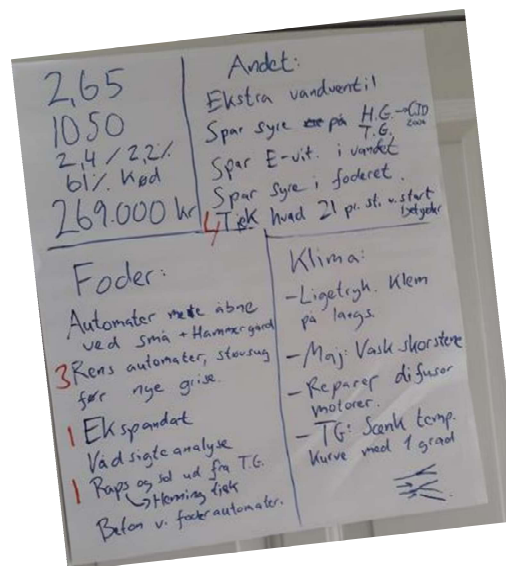 2,65
1050
2,4 / 2,2%
61% Kød
269.000 kr
Andet:
Ekstra vandventil
Spar syre på H.G. →
T.G.
Spar E-vit. i vandet
Spar syre i foderet.
4 Tjek hvad 21 pr. st. v. start
betyder
Foder:
Automater mere åbne
ved små + Hammergård
3 Rens automater, støvsug
før nye grise.
1 Ekspandat
Vådsigteanalyse
1 Raps og sol ud fra T.G.
↳ Henning tjek
Beton v. foderautomater.
Klima:
- Ligetryk. Klem
på langs.
- Maj: Vask skorstene
- Reparer difusor
motorer.
- TG: Sænk temp.
kurve med 1 grad